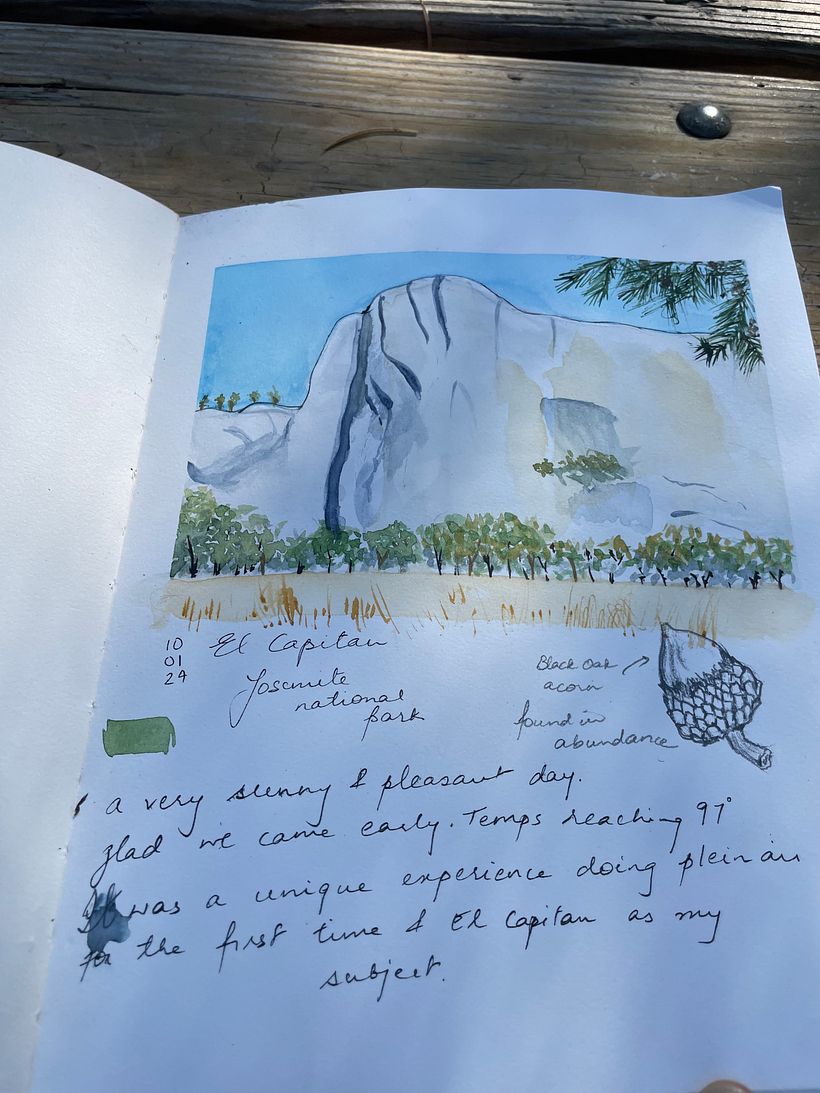 10
01
24
El Capitan
Yosemite
national
park
Black Oak
acorn
found in
abundance
a very sunny & pleasant day.
glad we came early. Temps reaching 97°
It was a unique experience doing plein air
for the first time & El Capitan as my
subject.